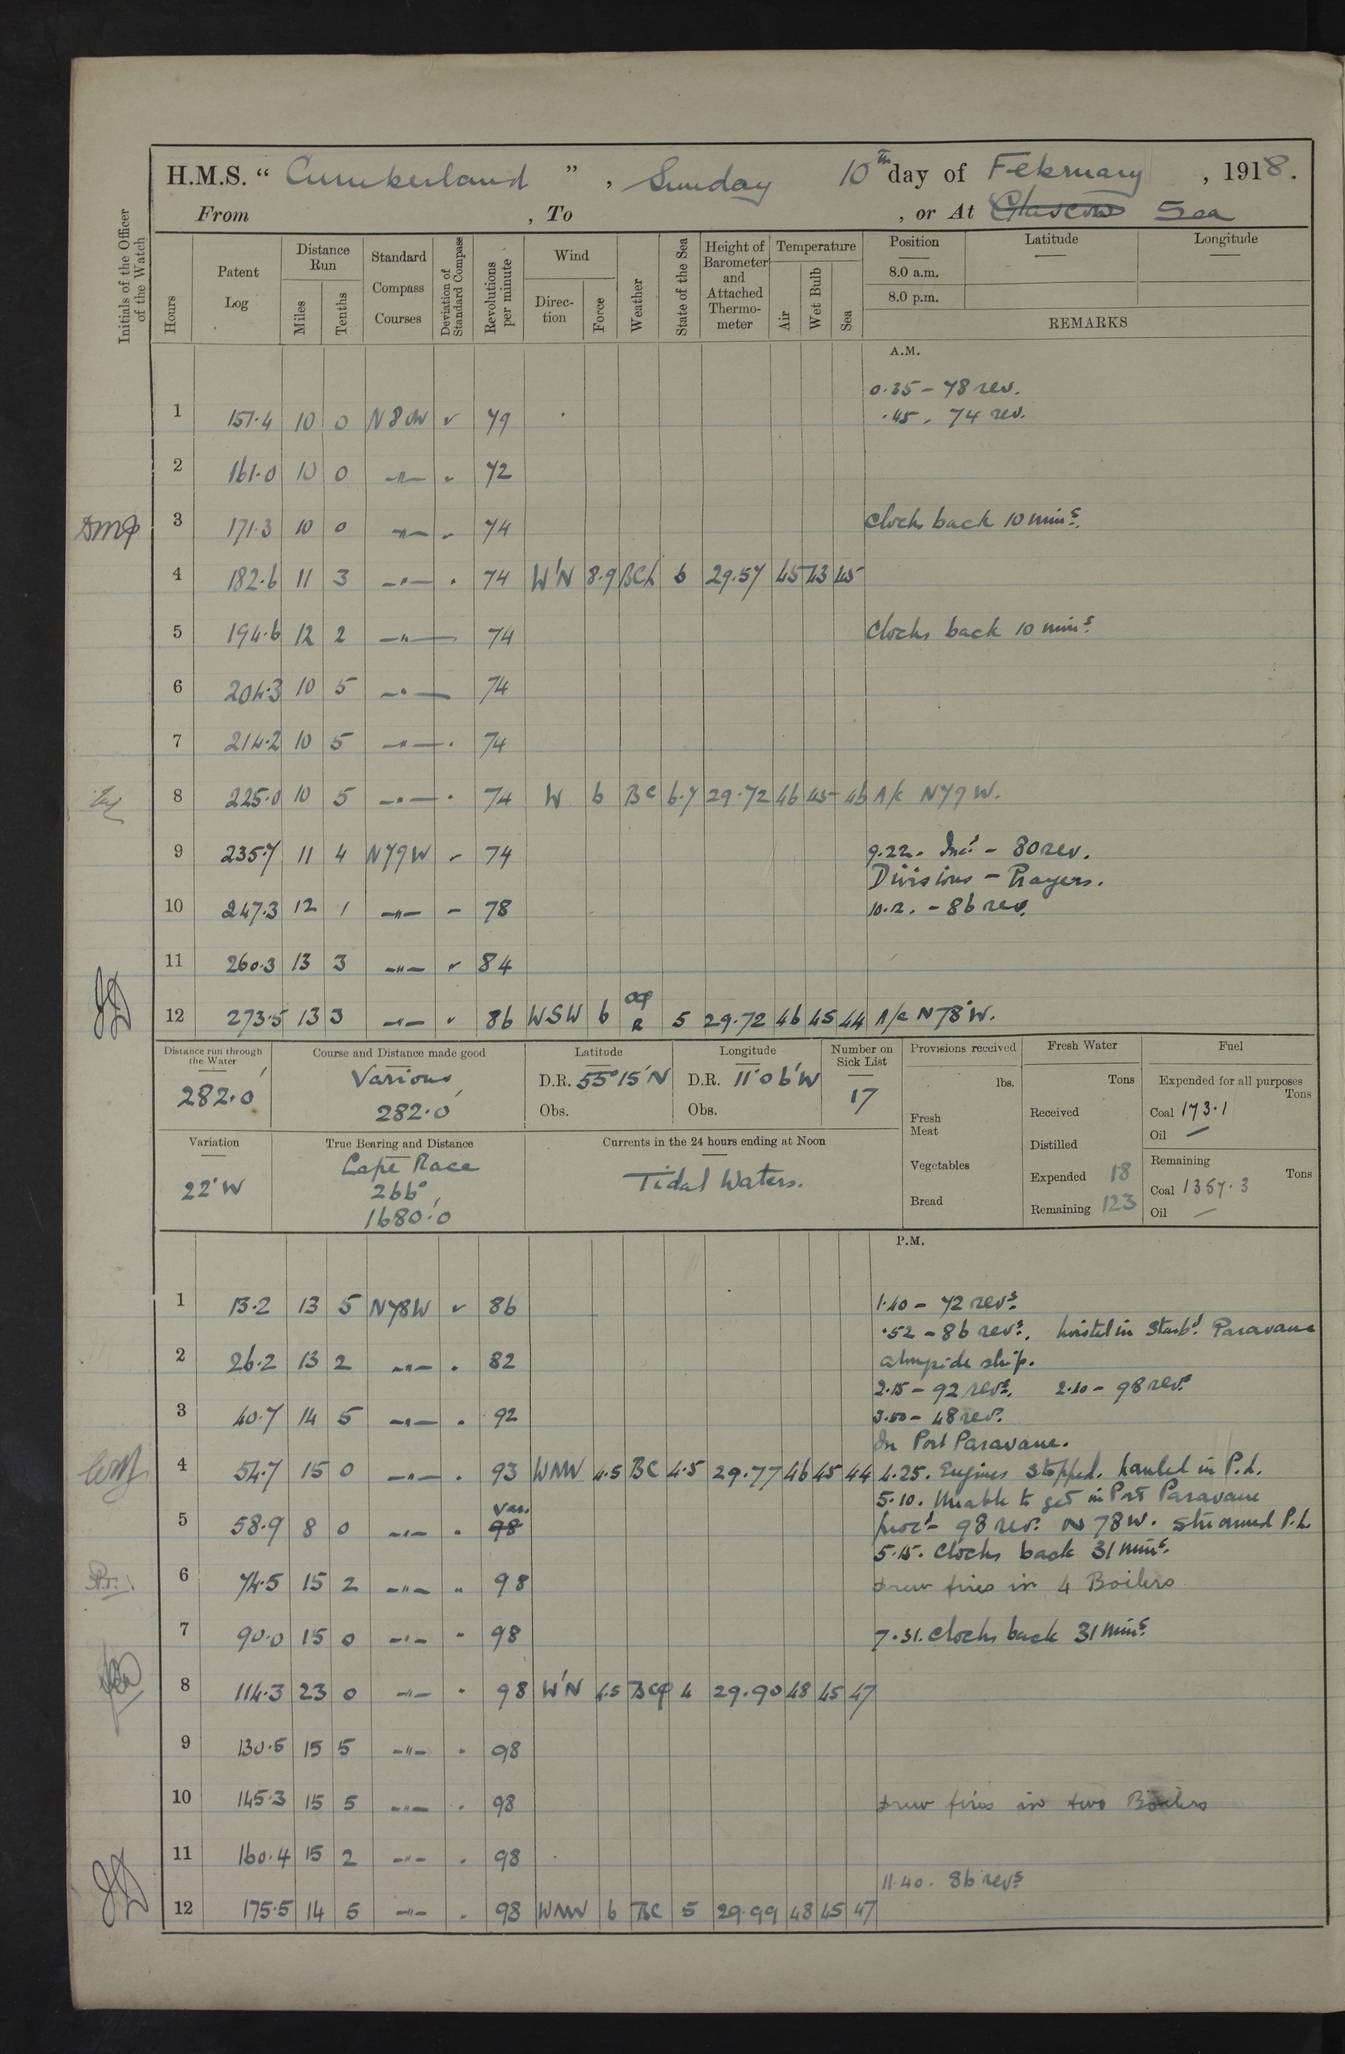 H.M.S. “ Cumberland ” , Sunday 10th day of February , 1918.
From , To , or At Glascow Sea
Initials of the Officer of the Watch
Hours
Patent Log
Distance Run
Miles
Tenths
Standard Compass Courses
Deviation of Standard Compass
Revolutions per minute
Wind
Direction
Force
Weather
State of the Sea
Height of Barometer and Attached Thermometer
Temperature
Air
Wet Bulb
Sea
Position Latitude Longitude
8.0 a.m.
8.0 p.m.
REMARKS
A.M.
0.35 – 78 rev.
1 151.4 10 0 N80W ✓ 79 .45 . 74 rev.
2 161.0 10 0 –"– 72
3 171.3 10 0 –"– 74 Clocks back 10 mins.
4 182.6 11 3 –"– 74 W'N 8.9 6 29.57 45 43 45
5 194.6 12 2 –"– 74 Clocks back 10 mins.
6 204.3 10 5 –"– 74
7 214.2 10 5 –"– 74
8 225.0 10 5 –"– 74 W 6 BC 6.7 29.72 46 45 46 A/c N79W.
9 235.7 11 4 N79W ✓ 74 9.22. Incd – 80 rev.
Divisions – Prayers.
10 247.3 12 1 –"– 78 10.12. – 86 rev.
11 260.3 13 3 –"– ✓ 84
12 273.5 13 3 –"– ✓ 86 WSW 6 R 5 29.72 46 45 44 A/c N78°W.
Distance run through the Water
282.0'
Course and Distance made good
Various
282.0'
Latitude
D.R. 55°15'N
Obs.
Longitude
D.R. 11°06'W
Obs.
Number on Sick List
17
Provisions received
lbs.
Fresh Meat
Vegetables
Bread
Fresh Water
Tons
Received
Distilled
Expended 18
Remaining 123
Fuel
Expended for all purposes
Tons
Coal 173.1
Oil –
Remaining
Tons
Coal 1357.3
Oil –
Variation
22°W
True Bearing and Distance
Cape Race
266°
1680'.0
Currents in the 24 hours ending at Noon
Tidal Waters.
P.M.
1 13.2 13 5 N78W ✓ 86 1.40 – 72 revs.
.52 – 86 revs. hoisted in Starbd. Paravane
2 26.2 13 2 –"– 82 alongside ship.
2.15 – 92 revs. 2.40 – 98 revs.
3 40.7 14 5 –"– 92 3.50 – 48 revs.
In Port Paravane.
4 54.7 15 0 –"– 93 WNW 4.5 BC 4.5 29.77 46 45 44 4.25. Engines stopped. hauled in P.L.
5.10. Unable to get in Port Paravane
5 58.9 8 0 –"– Var. 98 procd 98 rev. N78W. streamed P.L
5.15. Clocks back 31 mins.
6 74.5 15 2 –"– 98 Drew fires in 4 Boilers
7 90.0 15 0 –"– 98 7.31. Clocks back 31 mins.
8 114.3 23 0 –"– 98 W'N 4.5 BCq 4 29.90 48 45 47
9 130.5 15 5 –"– 98
10 145.3 15 5 –"– 98 Drew fires in two Boilers
11 160.4 15 2 –"– 98
11.40. 86 revs
12 175.5 14 5 –"– 98 WNW 6 BC 5 29.99 48 45 47